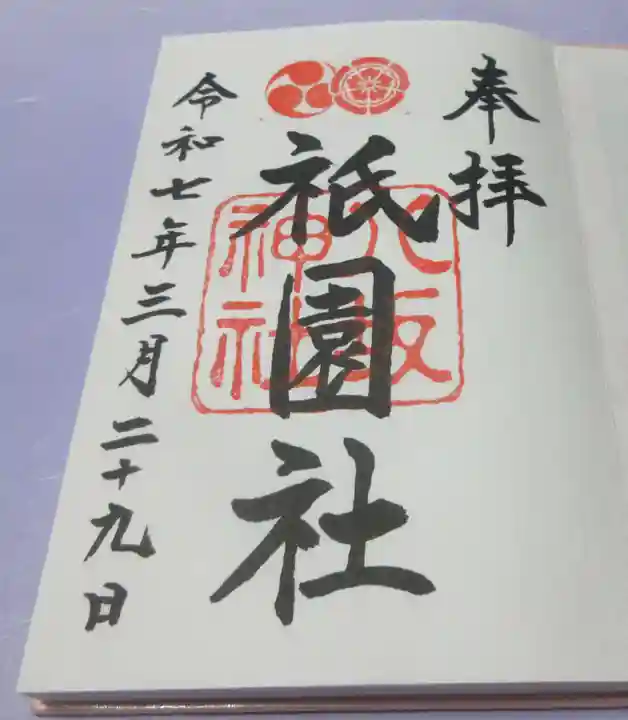 奉拝
祇園社
八坂神社
令和七年三月二十九日